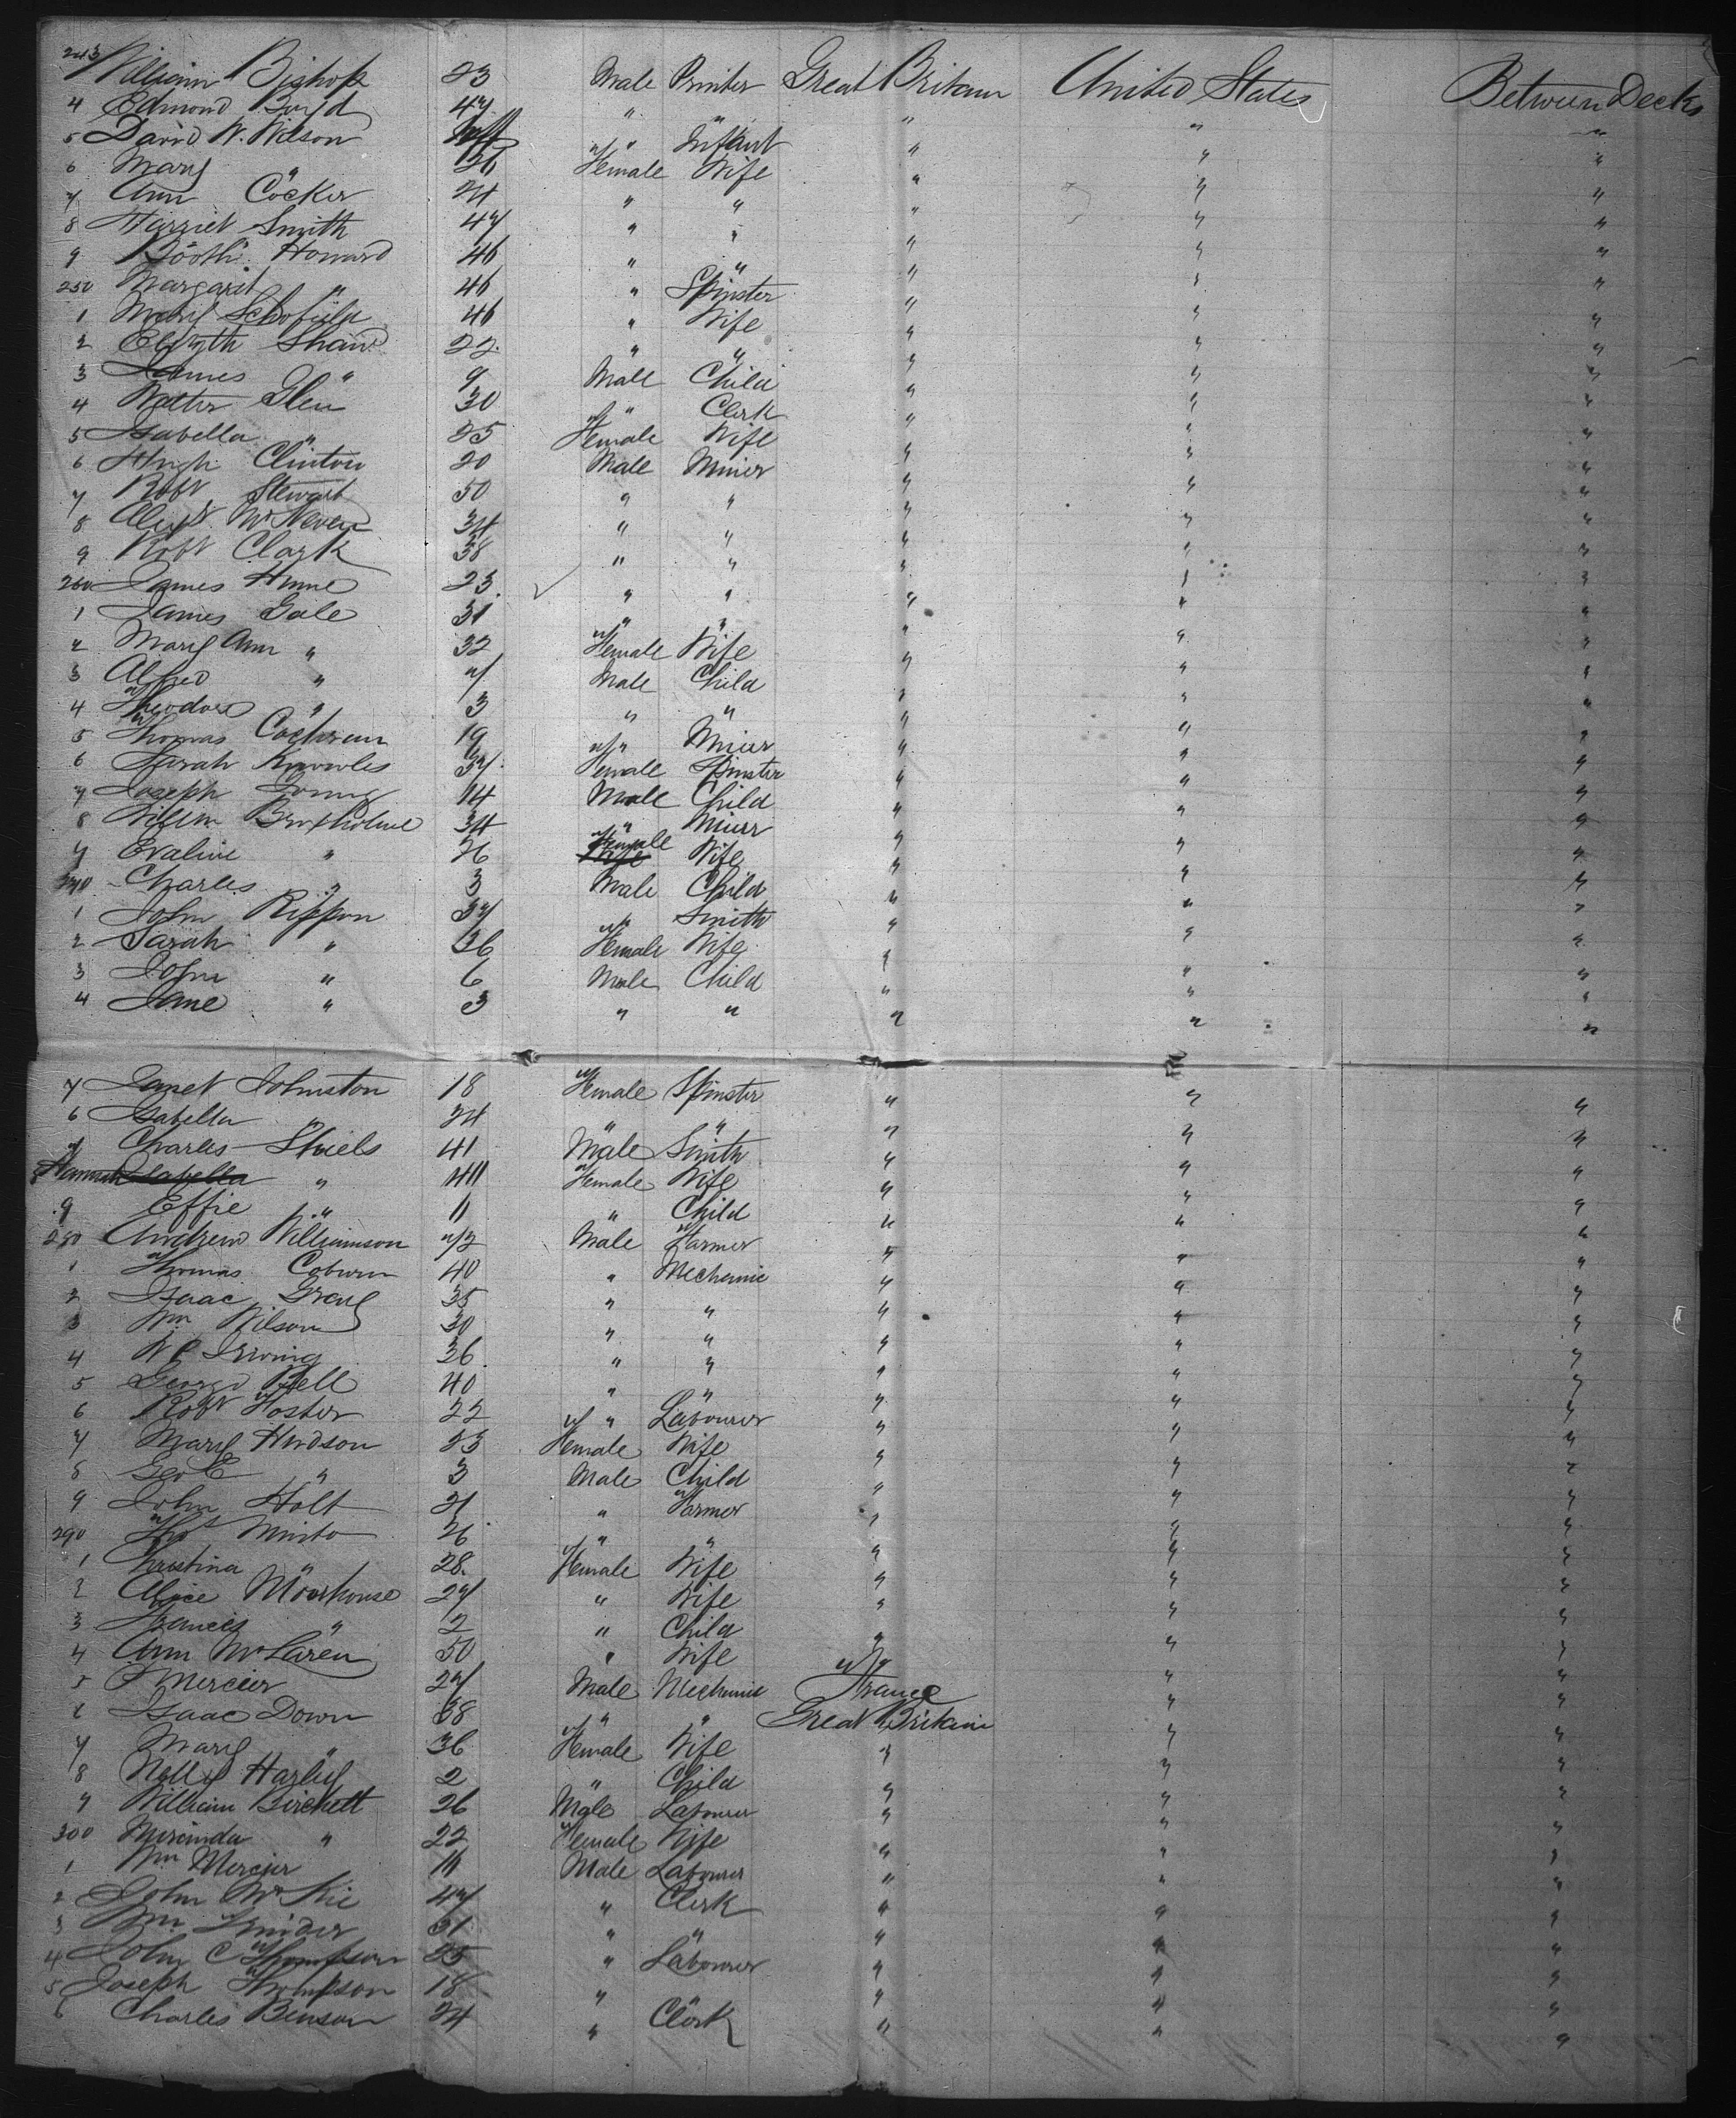 243 William Bishop 23 Male Printer Great Britain United States Between Decks
4 Edmond Boyd 47 " " " " "
5 David W. Wilson Inft " Infant " " "
6 Mary " 26 Female Wife " " "
7 Ann Cocker 24 " " " " "
8 Harriet Smith 47 " " " " "
9 Booth Howard 46 " " " " "
250 Margaret " 46 " Spinster " " "
1 Mary Schofield 46 " Wife " " "
2 Elizth Shaw 22 " " " " "
3 James " 9 Male Child " " "
4 Walter Glen 30 " Clerk " " "
5 Isabella " 25 Female Wife " " "
6 Hugh Clinton 20 Male Miner " " "
7 Robt Stewart 50 " " " " "
8 Alexr McNeven 34 " " " " "
9 Robt Clark 38 " " " " "
260 James Hume 23 " " " " "
1 James Gale 31 " " " " "
2 Mary Ann " 32 Female Wife " " "
3 Alfred " 7 Male Child " " "
4 Theodore " 3 " " " " "
5 Thomas Cochrean 19 " Miner " " "
6 Sarah Knowles 57 Female Spinster " " "
7 Joseph Young 14 Male Child " " "
8 Willm 34 " Miner " " "
9 Evaline " 26 Female Wife " " "
270 Charles " 3 Male Child " " "
1 John Rippon 37 " Smith " " "
2 Sarah " 36 Female Wife " " "
3 John " 6 Male Child " " "
4 Jane " 3 " " " " "
Janet Johnston 18 Female Spinster " " "
6 Isabella " 24 " " " " "
7 Charles Shiels 41 Male Smith " " "
8 Hannah Isabella " 44 Female Wife " " "
9 Effie " 11 " Child " " "
280 Andrew Williamson 72 Male Farmer " " "
1 Thomas Coburn 40 " Mechanic " " "
2 Isaac Gray 35 " " " " "
3 Wm Wilson 30 " " " " "
4 W C Irving 26 " " " " "
5 George Bell 40 " " " " "
6 Robt Foster 22 " Labourer " " "
7 Mary Hudson 23 Female Wife " " "
8 Geo E " 3 Male Child " " "
9 John Holt 21 " Farmer " " "
290 Thos Minto 26 " " " " "
1 Christina " 28 Female Wife " " "
2 Alice Moorhouse 27 " Wife " " "
3 Frances " 2 " Child " " "
4 Ann McLaren 50 " Wife " " "
5 Mercier 27 Male Mechanic France " "
6 Isaac Down 38 " " Great Britain " "
7 Mary " 36 Female Wife " " "
8 Nelly Harley 2 " Child " " "
9 William Birchett 26 Male Labourer " " "
300 Mirinda " 22 Female Wife " " "
1 Wm Mercier 19 Male Labourer " " "
2 John McKie 47 " Clerk " " "
3 Wm 31 " " " " "
4 John C Thompson 25 " Labourer " " "
5 Joseph Thompson 18 " " " " "
6 Charles Benson 24 " Clerk " " "